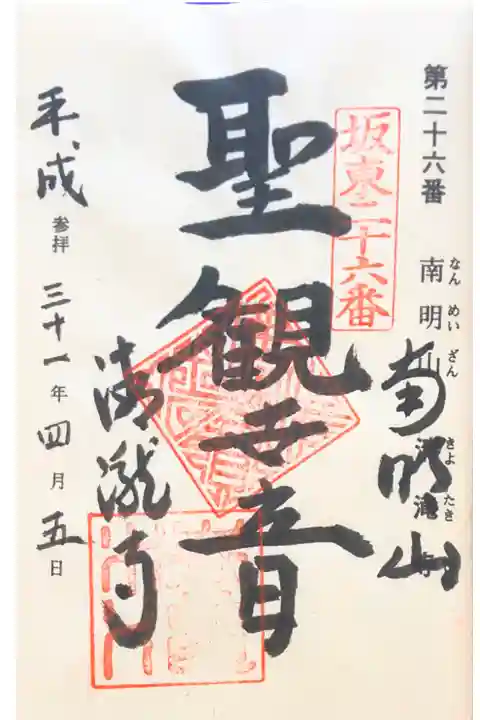 第二十六番
南明山
なんめいざん
清滝寺
きよたき
南明山
坂東二十六番
聖観世音
清瀧寺
平成三十一年四月五日
参拝